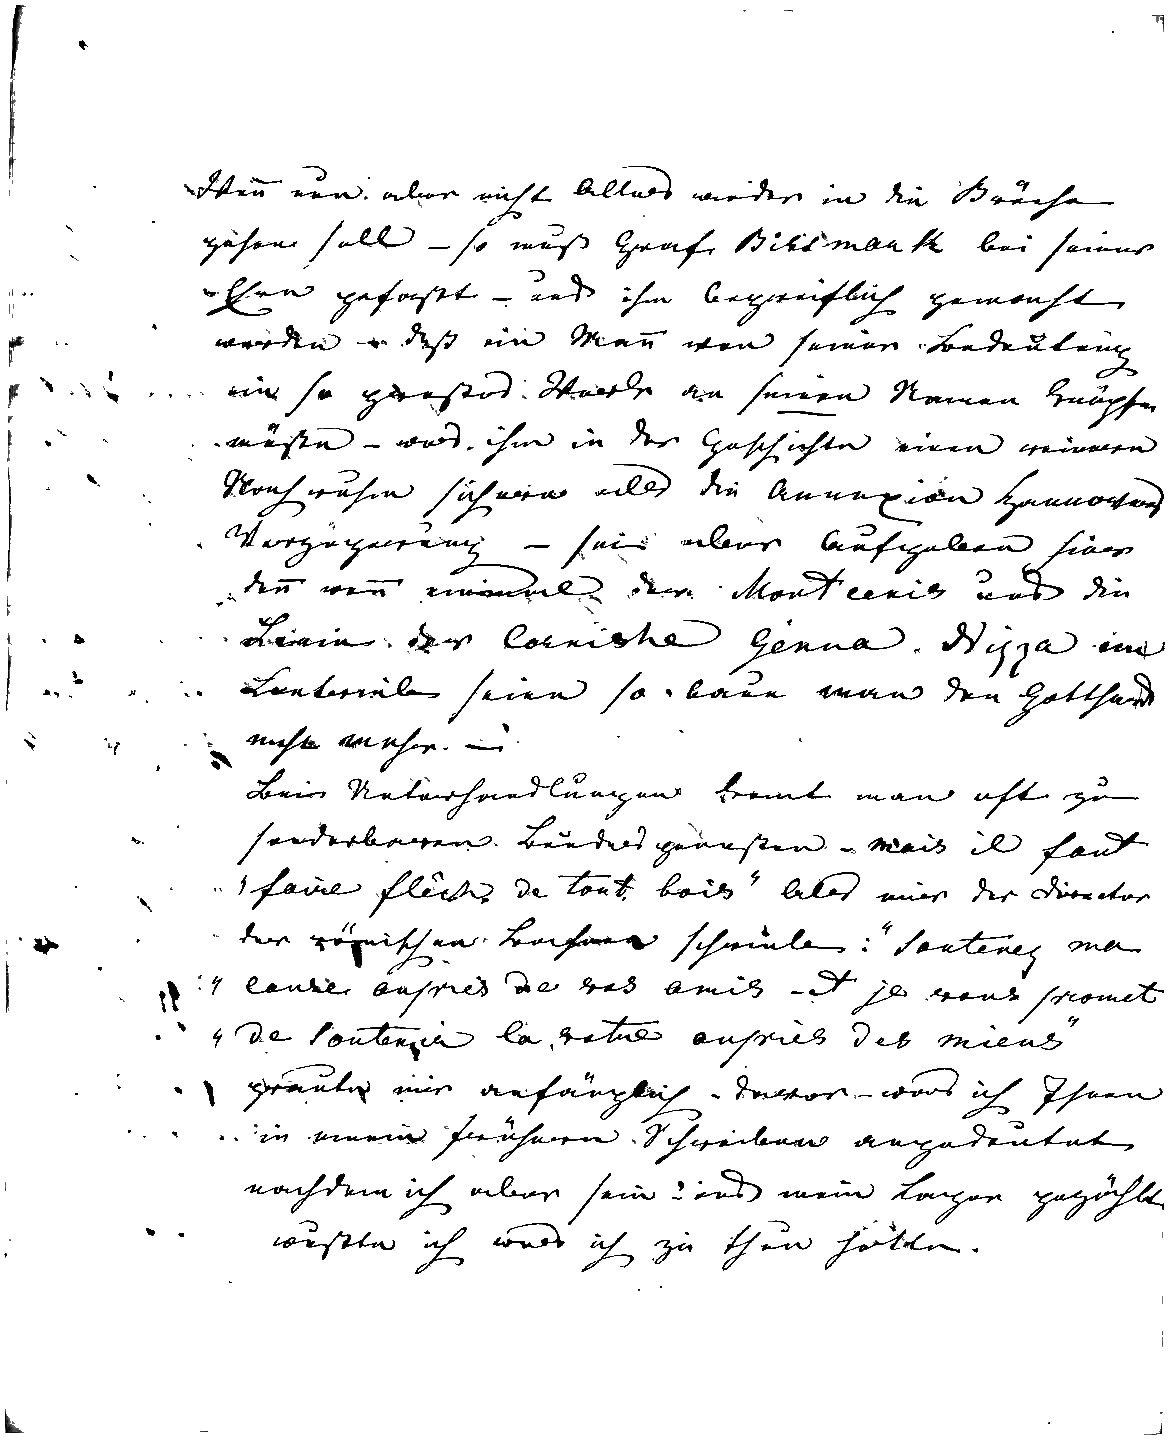 Wen̄ nun aber nicht Alles wieder in die Brüche
gehen soll – so muß Graf Bissmark bei seiner
Ehre gefaßt – und ihm begreiflich gemacht
werden – daß ein Man̄ von seiner Bedeutung
ein so großes Werk an seinen Namen knüpfen
müßte – was ihm in der Geschichte einen reinern
Nachruhm sichere als die Annexion Hannovers
Verzögerung – sei aber Aufgeben hier
den̄ wen̄ einmal der Montcenis und die
Linie der Corniche Genua. Nizza im
Betriebe seien so baue man den Gotthard
nicht mehr. –
Bei Unterhandlungen kom̄t man oft zu
sonderbaren Bundesgenossen – mais il faut
"faire flêche de tout bois" Als mir der Director
der römischen Bahnen schrieb: "Soutenez ma
"cause auprès de vos amis – et je vous promet
"de soutenir la votre auprès des miens"
graute mir anfänglich – davor – was ich Ihnen
in einem frühern Schreiben angedeutet
nachdem ich aber sein und mein Lager gezählt
wußte ich was ich zu thun hätte.